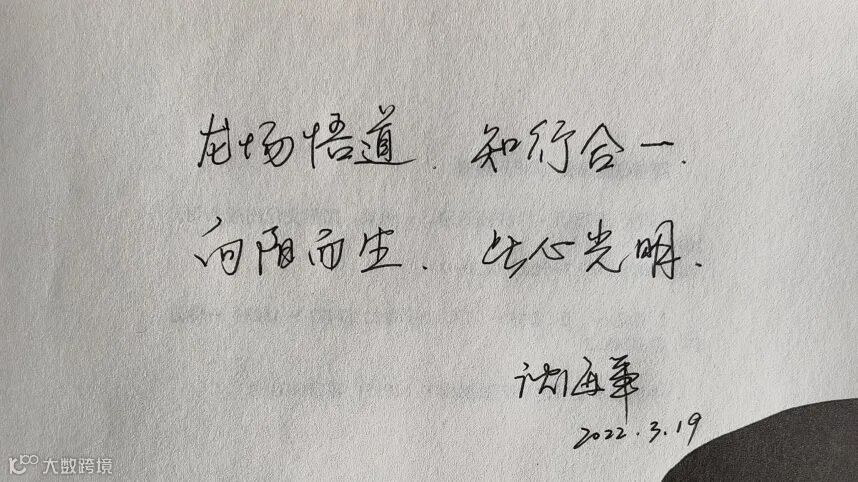 龙场悟道.知行合一.
向阳而生.此心光明.
海军
2022.3.19
大数跨境